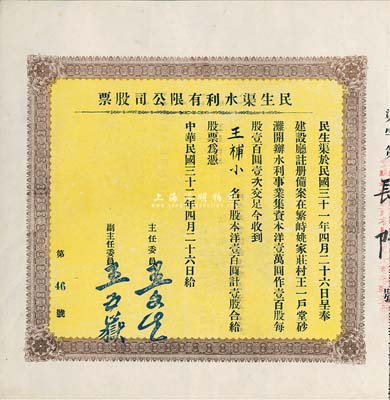 民生渠水利有限公司股票
民生渠於民國三十一年四月二十六日呈奉
建設廳註册備案在繁峙姚家莊村王一戶堂砂
灘開辦水利事業集資本洋壹萬圓作壹百股每
股壹百圓壹次交足今收到
王補小 名下股本洋壹百圓計壹股合給
股票為憑
主任委員
副主任委員
中華民國三十一年四月二十六日給
第46號